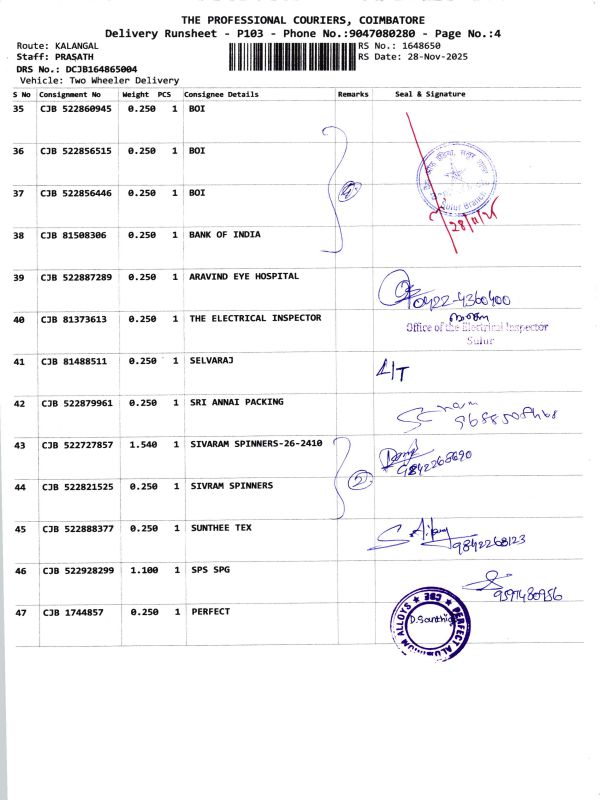 THE PROFESSIONAL COURIERS, COIMBATORE
Delivery Runsheet - P103 - Phone No.:9047080280 - Page No.:4
Route: KALANGAL RS No.: 1648650
Staff: PRASATH RS Date: 28-Nov-2025
DRS No.: DCJB164865004
Vehicle: Two Wheeler Delivery
S No Consignment No Weight PCS Consignee Details Remarks Seal & Signature
35 CJB 522860945 0.250 1 BOI
36 CJB 522856515 0.250 1 BOI
37 CJB 522856446 0.250 1 BOI
Sulur Branch
28/11/25
38 CJB 81508306 0.250 1 BANK OF INDIA
39 CJB 522887289 0.250 1 ARAVIND EYE HOSPITAL
0422-4360400
40 CJB 81373613 0.250 1 THE ELECTRICAL INSPECTOR
Office of the Electrical Inspector
Sulur
41 CJB 81488511 0.250 1 SELVARAJ
L/T
42 CJB 522879961 0.250 1 SRI ANNAI PACKING
43 CJB 522727857 1.540 1 SIVARAM SPINNERS-26-2410
44 CJB 522821525 0.250 1 SIVRAM SPINNERS
2
45 CJB 522888377 0.250 1 SUNTHEE TEX
9842268123
46 CJB 522928299 1.100 1 SPS SPG
47 CJB 1744857 0.250 1 PERFECT
PERFECT ALUMINIUM ALLOYS ★ CBE ★